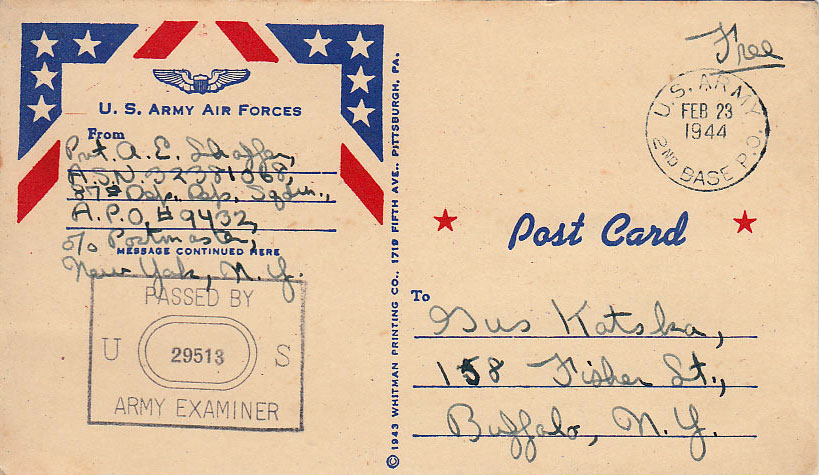 U. S. ARMY AIR FORCES
From
Pvt. A. E. Shaffer,
A.S.N. 32381068,
87th Dep. Rep. Sqdn.,
A.P.O. # 9432,
c/o Postmaster,
MESSAGE CONTINUED HERE
New York, N.Y.
PASSED BY
U 29513 S
ARMY EXAMINER
© 1943 WHITMAN PRINTING CO., 1719 FIFTH AVE., PITTSBURGH, PA.
Free
U.S. ARMY
FEB 23
1944
2ND BASE P.O.
Post Card
To
Gus Katska,
158 Fisher St.,
Buffalo, N.Y.